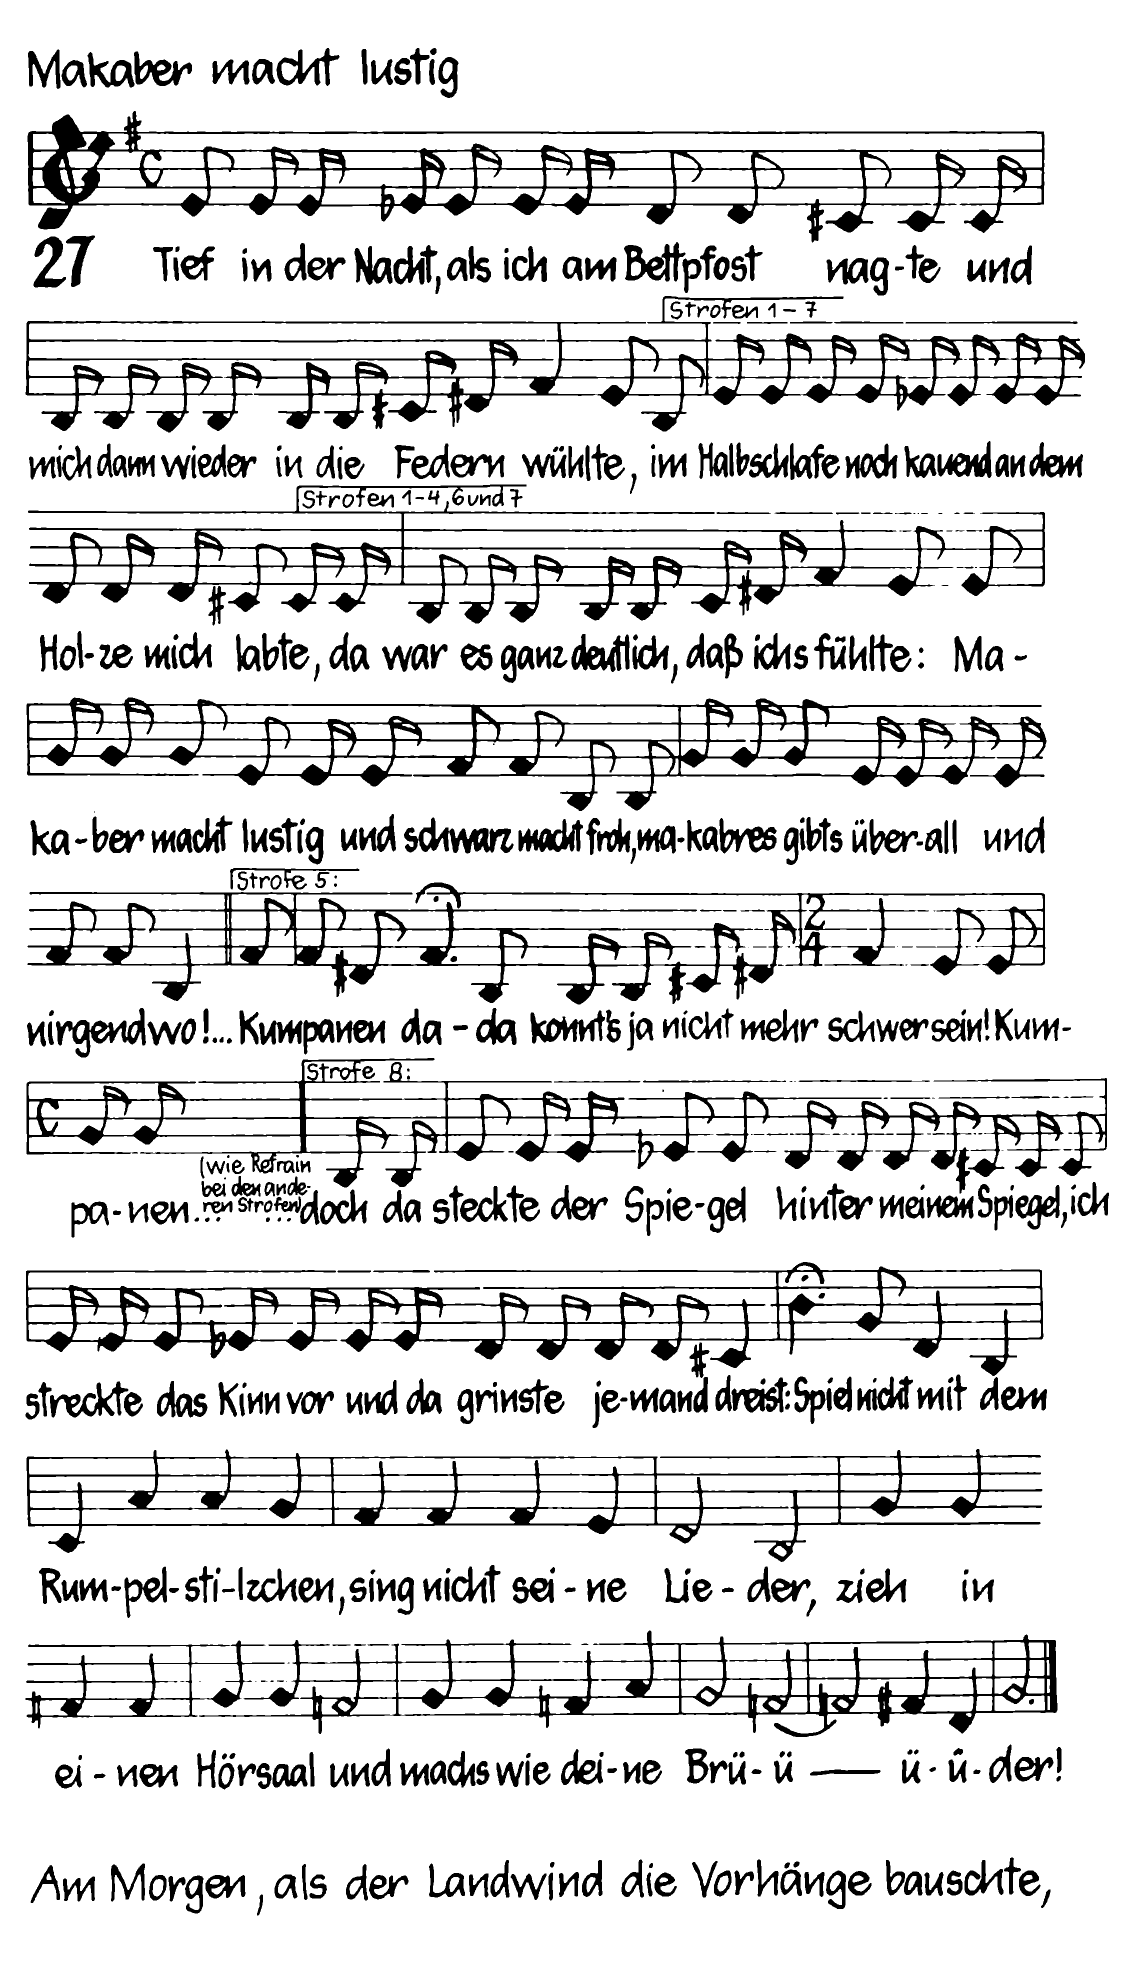 Makaber macht lustig
27 Tief in der Nacht, als ich am Bettpfost nag-te und
Strofen 1-7
mich dann wieder in die Federn wühlte, im Halbschlafe noch kauend an dem
Strofen 1-4, 6 und 7
Hol-ze mich labte, da war es ganz deutlich, daß ichs fühlte: Ma-
ka-ber macht lustig und schwarz macht froh, ma-kabres gibts über-all und
Strofe 5:
2
4
nirgendwo!... Kumpanen da-da konnt's ja nicht mehr schwer sein! Kum-
Strofe 8:
(wie Refrain
bei den ande-
ren Strofen)
pa-nen... ...doch da steckte der Spie-gel hinter meinem Spiegel, ich
streckte das Kinn vor und da grinste je-mand dreist: Spiel nicht mit dem
Rum-pel-sti-lzchen, sing nicht sei-ne Lie-der, zieh in
ei-nen Hörsaal und machs wie dei-ne Brü-ü — ü-ü-der!
Am Morgen, als der Landwind die Vorhänge bauschte,